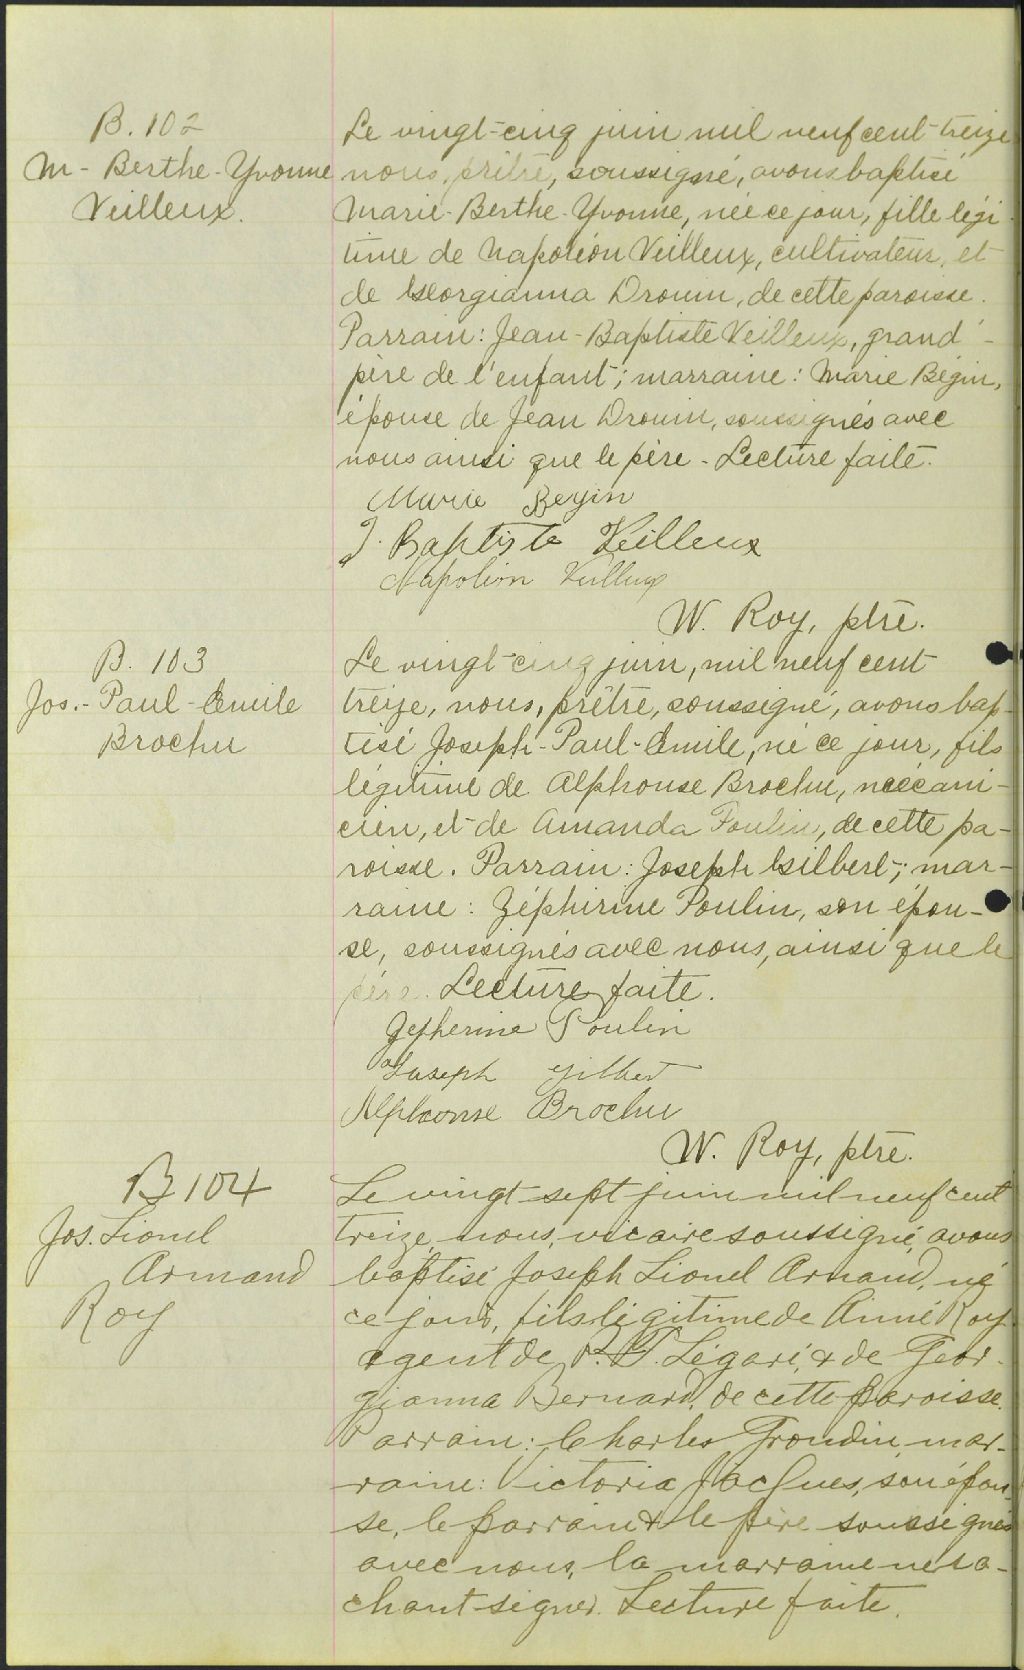 B. 102
M- Berthe-Yvonne
Veilleux.
Le vingt-cinq juin mil neuf cent-treize
nous, prêtre, soussigné, avons baptisé
Marie-Berthe-Yvonne, née ce jour, fille légi
time de Napoléon Veilleux, cultivateur, et
de Georgianna Drouin, de cette paroisse.
Parrain: Jean-Baptiste Veilleux, grand-
père de l'enfant; marraine: Marie Bégin,
épouse de Jean Drouin, soussignés avec
nous ainsi que le père - Lecture faite.
Marie Begin
J. Baptiste Veilleux
Napoléon Veilleux
W. Roy, ptre.
B. 103
Jos.- Paul-Emile
Brochu
Le vingt-cinq juin, mil neuf cent
treize, nous, prêtre, soussigné, avons bap-
tisé Joseph-Paul-Emile, né ce jour, fils
légitime de Alphonse Brochu, mécani-
cien, et de Amanda Poulin, de cette pa-
roisse. Parrain: Joseph Gilbert; mar-
raine: Zéphirine Poulin, son épou-
se, soussignés avec nous, ainsi que le
père. Lecture faite.
Zepherine Poulin
Joseph Gilbert
Alphonse Brochu
W. Roy, ptre.
B 104
Jos. Lionel
Armand
Roy
Le vingt-sept juin mil neuf cent
treize, nous, vicaire soussigné, avons
baptisé Joseph Lionel Armand, né
ce jour, fils légitime de Aimé Roy
agent de P. T. Légaré, & de Geor-
gianna Bernard, de cette paroisse.
Parrain: Charles Grondin, mar-
raine: Victoria Jacques, son épou-
se, le parrain & le père soussignés
avec nous, la marraine ne sa-
chant signer. Lecture faite.